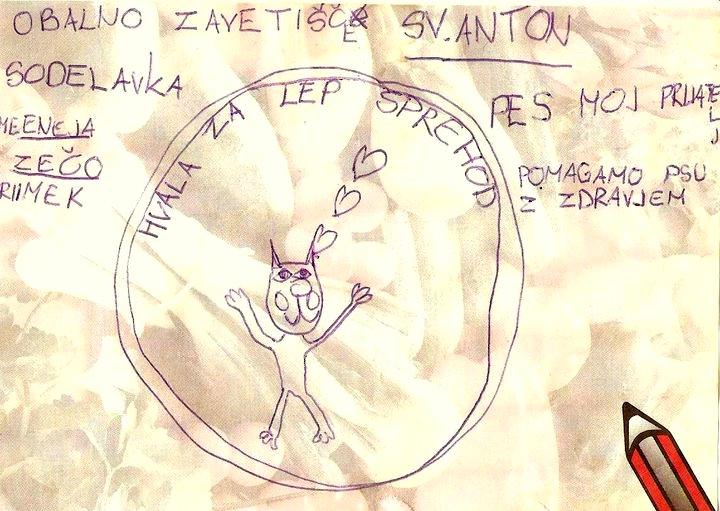 OBALNO ZAVETIŠČE SV.ANTON
SODELAVKA
ZEČO
HVALA ZA LEP SPREHOD
PES MOJ PRIJATELJ
POMAGAMO PSU
Z ZDRAVJEM